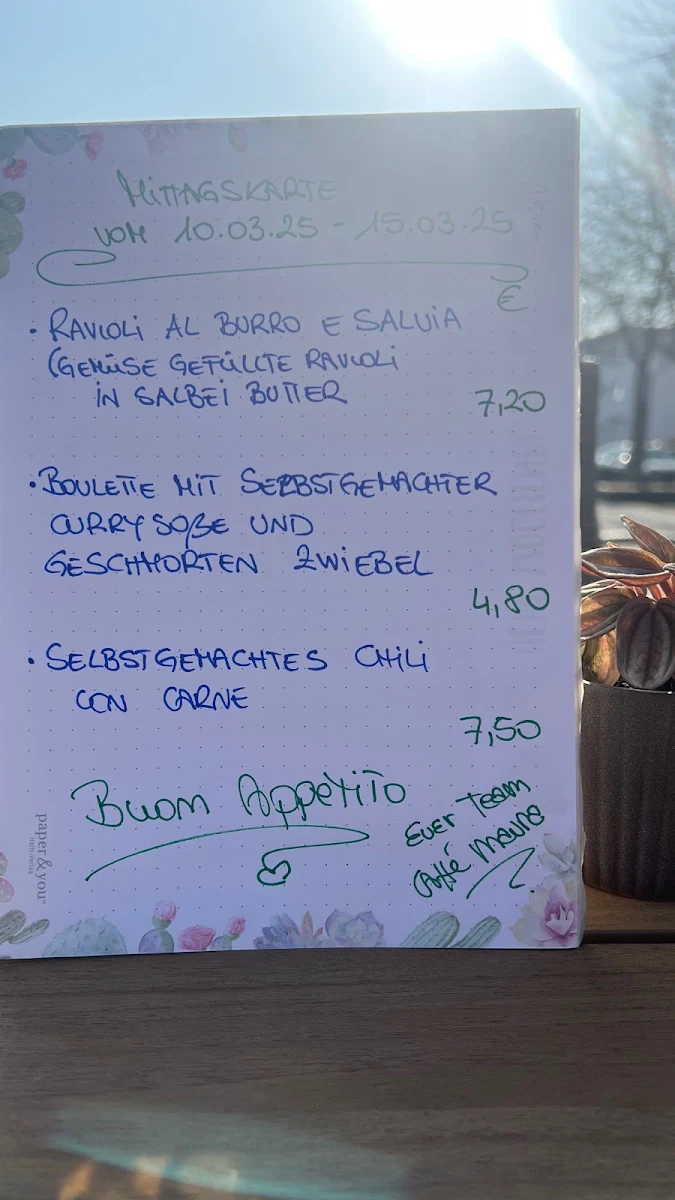 MITTAGSKARTE
VOM 10.03.25 - 15.03.25
€
• RAVIOLI AL BURRO E SALVIA
(GEMÜSE GEFÜLLTE RAVIOLI
IN SALBEI BUTTER
7,20
• BOULETTE MIT SELBSTGEMACHTER
CURRY SOßE UND
GESCHMORTEN ZWIEBEL
4,80
• SELBSTGEMACHTES CHILI
CON CARNE
7,50
Buon Appetito
EUER TEAM
Caffé MAURO
paper & you